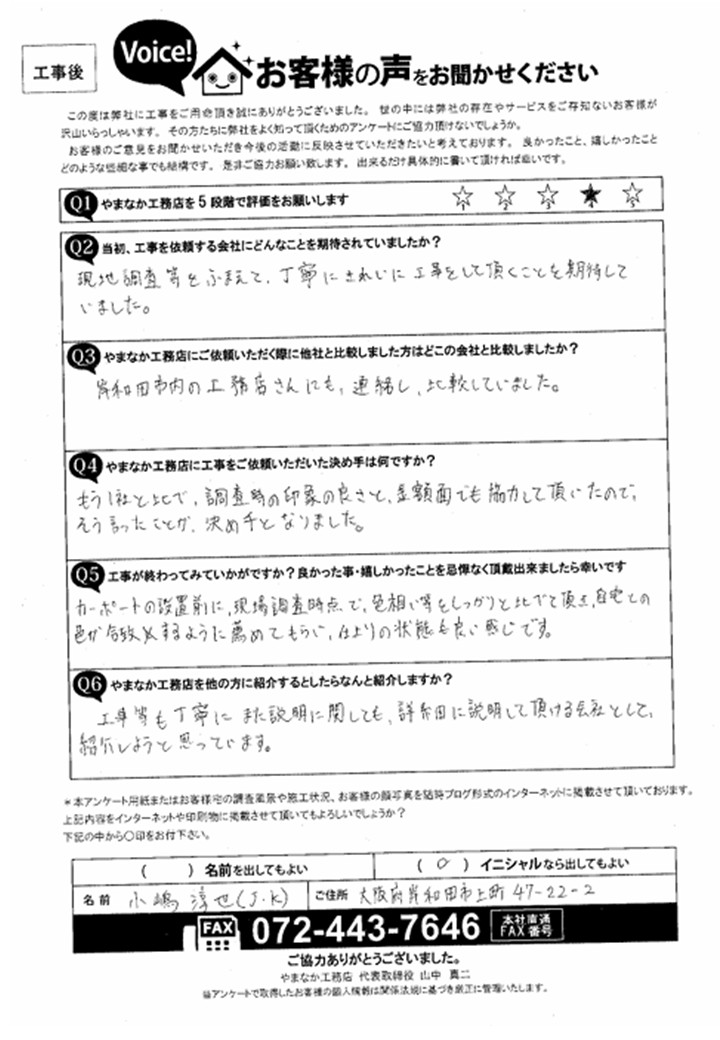 工事後
Voice!
お客様の声をお聞かせください
この度は弊社に工事をご用命頂き誠にありがとうございました。 世の中には弊社の存在やサービスをご存知ないお客様が
沢山いらっしゃいます。 その方たちに弊社をよく知って頂くためのアンケートにご協力頂けないでしょうか。
お客様のご意見をお聞かせいただき今後の活動に反映させていただきたいと考えております。 良かったこと、嬉しかったこと
どのような些細な事でも結構です。 是非ご協力お願い致します。 出来るだけ具体的に書いて頂ければ幸いです。
Q1 やまなか工務店を5段階で評価をお願いします
1 2 3 4 5
Q2 当初、工事を依頼する会社にどんなことを期待されていましたか?
現地調査等をふまえて、丁寧にきれいに工事をして頂くことを期待して
いました。
Q3 やまなか工務店にご依頼いただく際に他社と比較しました方はどこの会社と比較しましたか?
岸和田市内の工務店さんにも、連絡し、比較していました。
Q4 やまなか工務店に工事をご依頼いただいた決め手は何ですか?
もう1社と比べ、調査時の印象の良さと、金額面でも協力して頂いたので、
そう言ったことが、決め手となりました。
Q5 工事が終わってみていかがですか?良かった事・嬉しかったことを忌憚なく頂戴出来ましたら幸いです
カーポートの設置前に、現場調査時点で、色相い等をしっかりと比べて頂き、自宅との
色が合致するように薦めてもらい、仕上りの状態も良い感じです。
Q6 やまなか工務店を他の方に紹介するとしたらなんと紹介しますか?
工事等も丁寧に また説明に関しても、詳細に説明して頂ける会社として、
紹介しようと思っています。
*本アンケート用紙またはお客様宅の調査風景や施工状況、お客様の顔写真を随時ブログ形式のインターネットに掲載させて頂いております。
上記内容をインターネットや印刷物に掲載させて頂いてもよろしいでしょうか?
下記の中から○印をお付下さい。
( ) 名前を出してもよい ( ○ ) イニシャルなら出してもよい
名前 小嶋 淳也(J.K) ご住所 大阪府岸和田市上町47-22-2
FAX 072-443-7646 本社直通 FAX番号
ご協力ありがとうございました。
やまなか工務店 代表取締役 山中 真二
当アンケートで取得したお客様の個人情報は関係法規に基づき厳正に管理いたします。